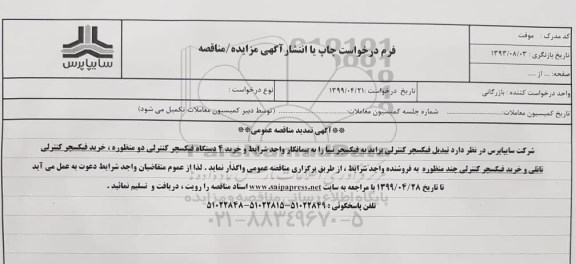 کد مدرک : موقت
تاریخ بازنگری : ۱۳۹۳/۰۸/۰۳
صفحه: ... از ....
فرم درخواست چاپ یا انتشار آگهی مزایده/مناقصه
سایپاپرس
واحد درخواست کننده : بازرگانی
تاریخ درخواست :۱۳۹۹/۰۴/۲۱
نوع درخواست :
تاریخ کمیسیون معاملات:
شماره جلسه کمیسیون معاملات:
(توسط دبیر کمیسیون معاملات تکمیل می شود)
**آگهی تمدید مناقصه عمومی**
شرکت سایپاپرس در نظر دارد تبدیل فیکسچر کنترلی پراید به فیکسچر تیبا را به پیمانکار واجد شرایط و خرید ۴ دستگاه فیکسچر کنترلی دو منظوره ، خرید فیکسچر کنترلی
تاتلی و خرید فیکسچر کنترلی چند منظوره به فروشنده واجد شرایط ، از طریق برگزاری مناقصه عمومی واگذار نماید . لذا از عموم متقاضیان واجد شرایط دعوت به عمل می آید
تا تاریخ ۱۳۹۹/۰۴/۲۸ با مراجعه به سایت www.saipapress.net اسناد مناقصه را رویت ، دریافت و تسلیم نمائید .
تلفن پاسخگوئی : ۵۱۰۲۲۸۴۹-۵۱۰۲۲۸۱۵-۵۱۰۲۲۸۴۸
پایگاه اطلاع رسانی مناقصه و مزایده
۰۲۱-۸۸۳۴۹۶۷۰-۵